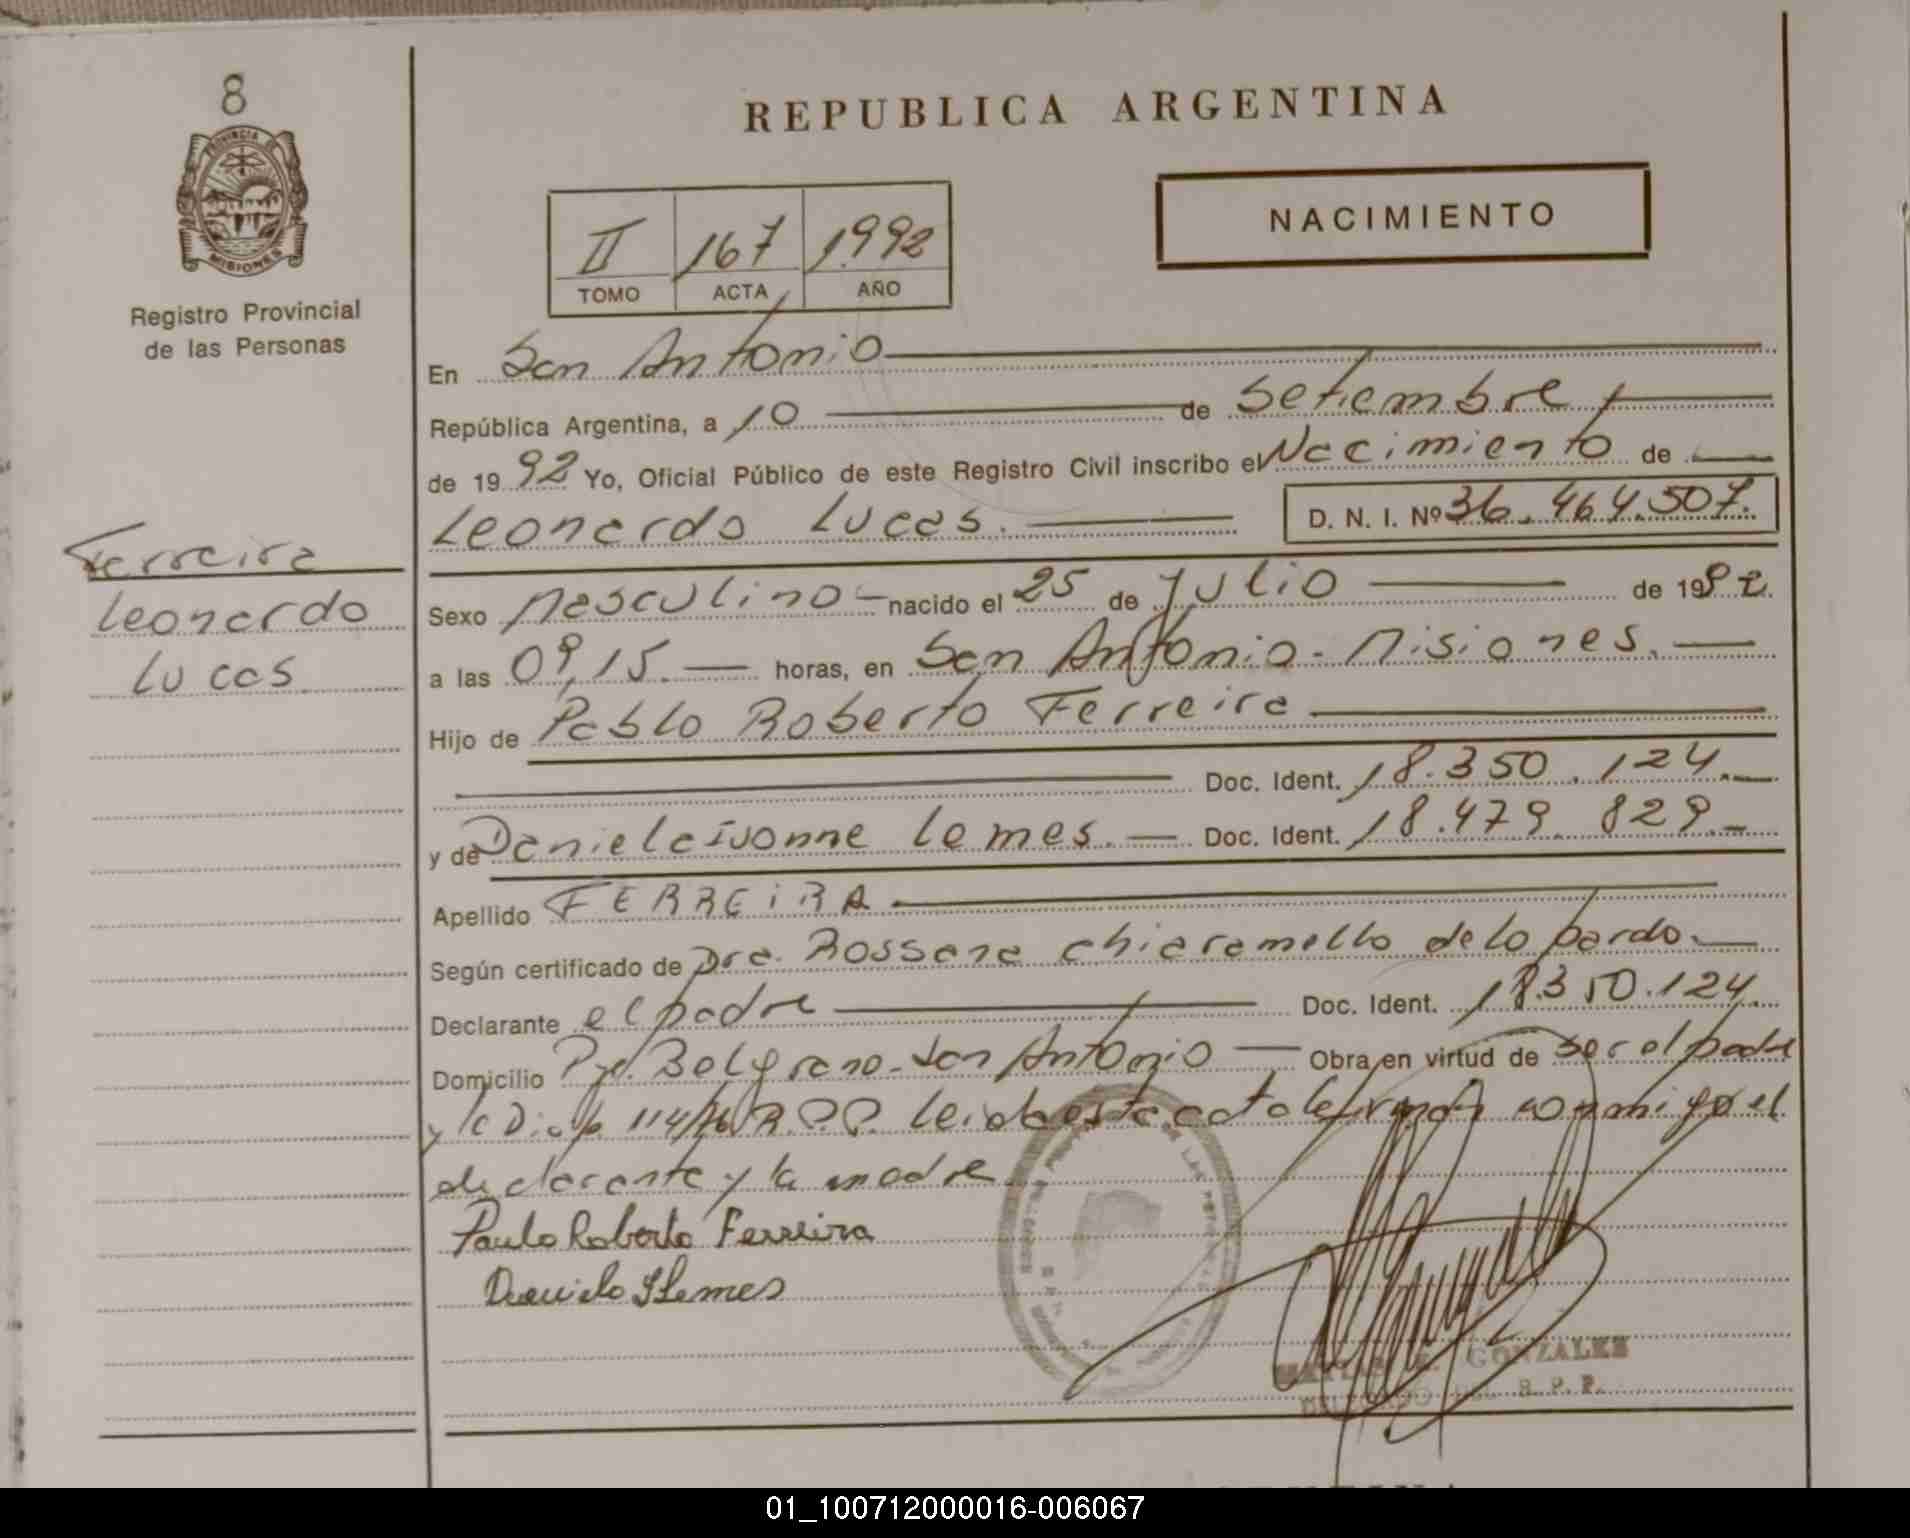 8
PROVINCIA DE
MISIONES
Registro Provincial
de las Personas
Ferreira
Leonardo
Lucas
REPUBLICA ARGENTINA
NACIMIENTO
II 167 1992
TOMO ACTA AÑO
En San Antonio
República Argentina, a 10 de Setiembre
de 1992 Yo, Oficial Público de este Registro Civil inscribo el Nacimiento de
Leonardo Lucas. D. N. I. Nº 36.464.507.
Sexo Masculino - nacido el 25 de Julio de 1992.
a las 09,15 horas, en San Antonio - Misiones.
Hijo de Pablo Roberto Ferreira
Doc. Ident. 18.350.124.
y de Daniela Ivonne Lemes. Doc. Ident. 18.479.829.
Apellido FERREIRA
Según certificado de Dra. Rossana Chiaramello de Lo pardo.
Declarante el padre Doc. Ident. 18.350.124.
Domicilio Pje. Belgrano - San Antonio Obra en virtud de ser el padre
y la Disp. 114/76 R.P.P. Leida esta acta la firman conmigo el
declarante y la madre
Paulo Roberto Ferreira
Lemes
GONZALEZ
R. P. P.
01_100712000016-006067